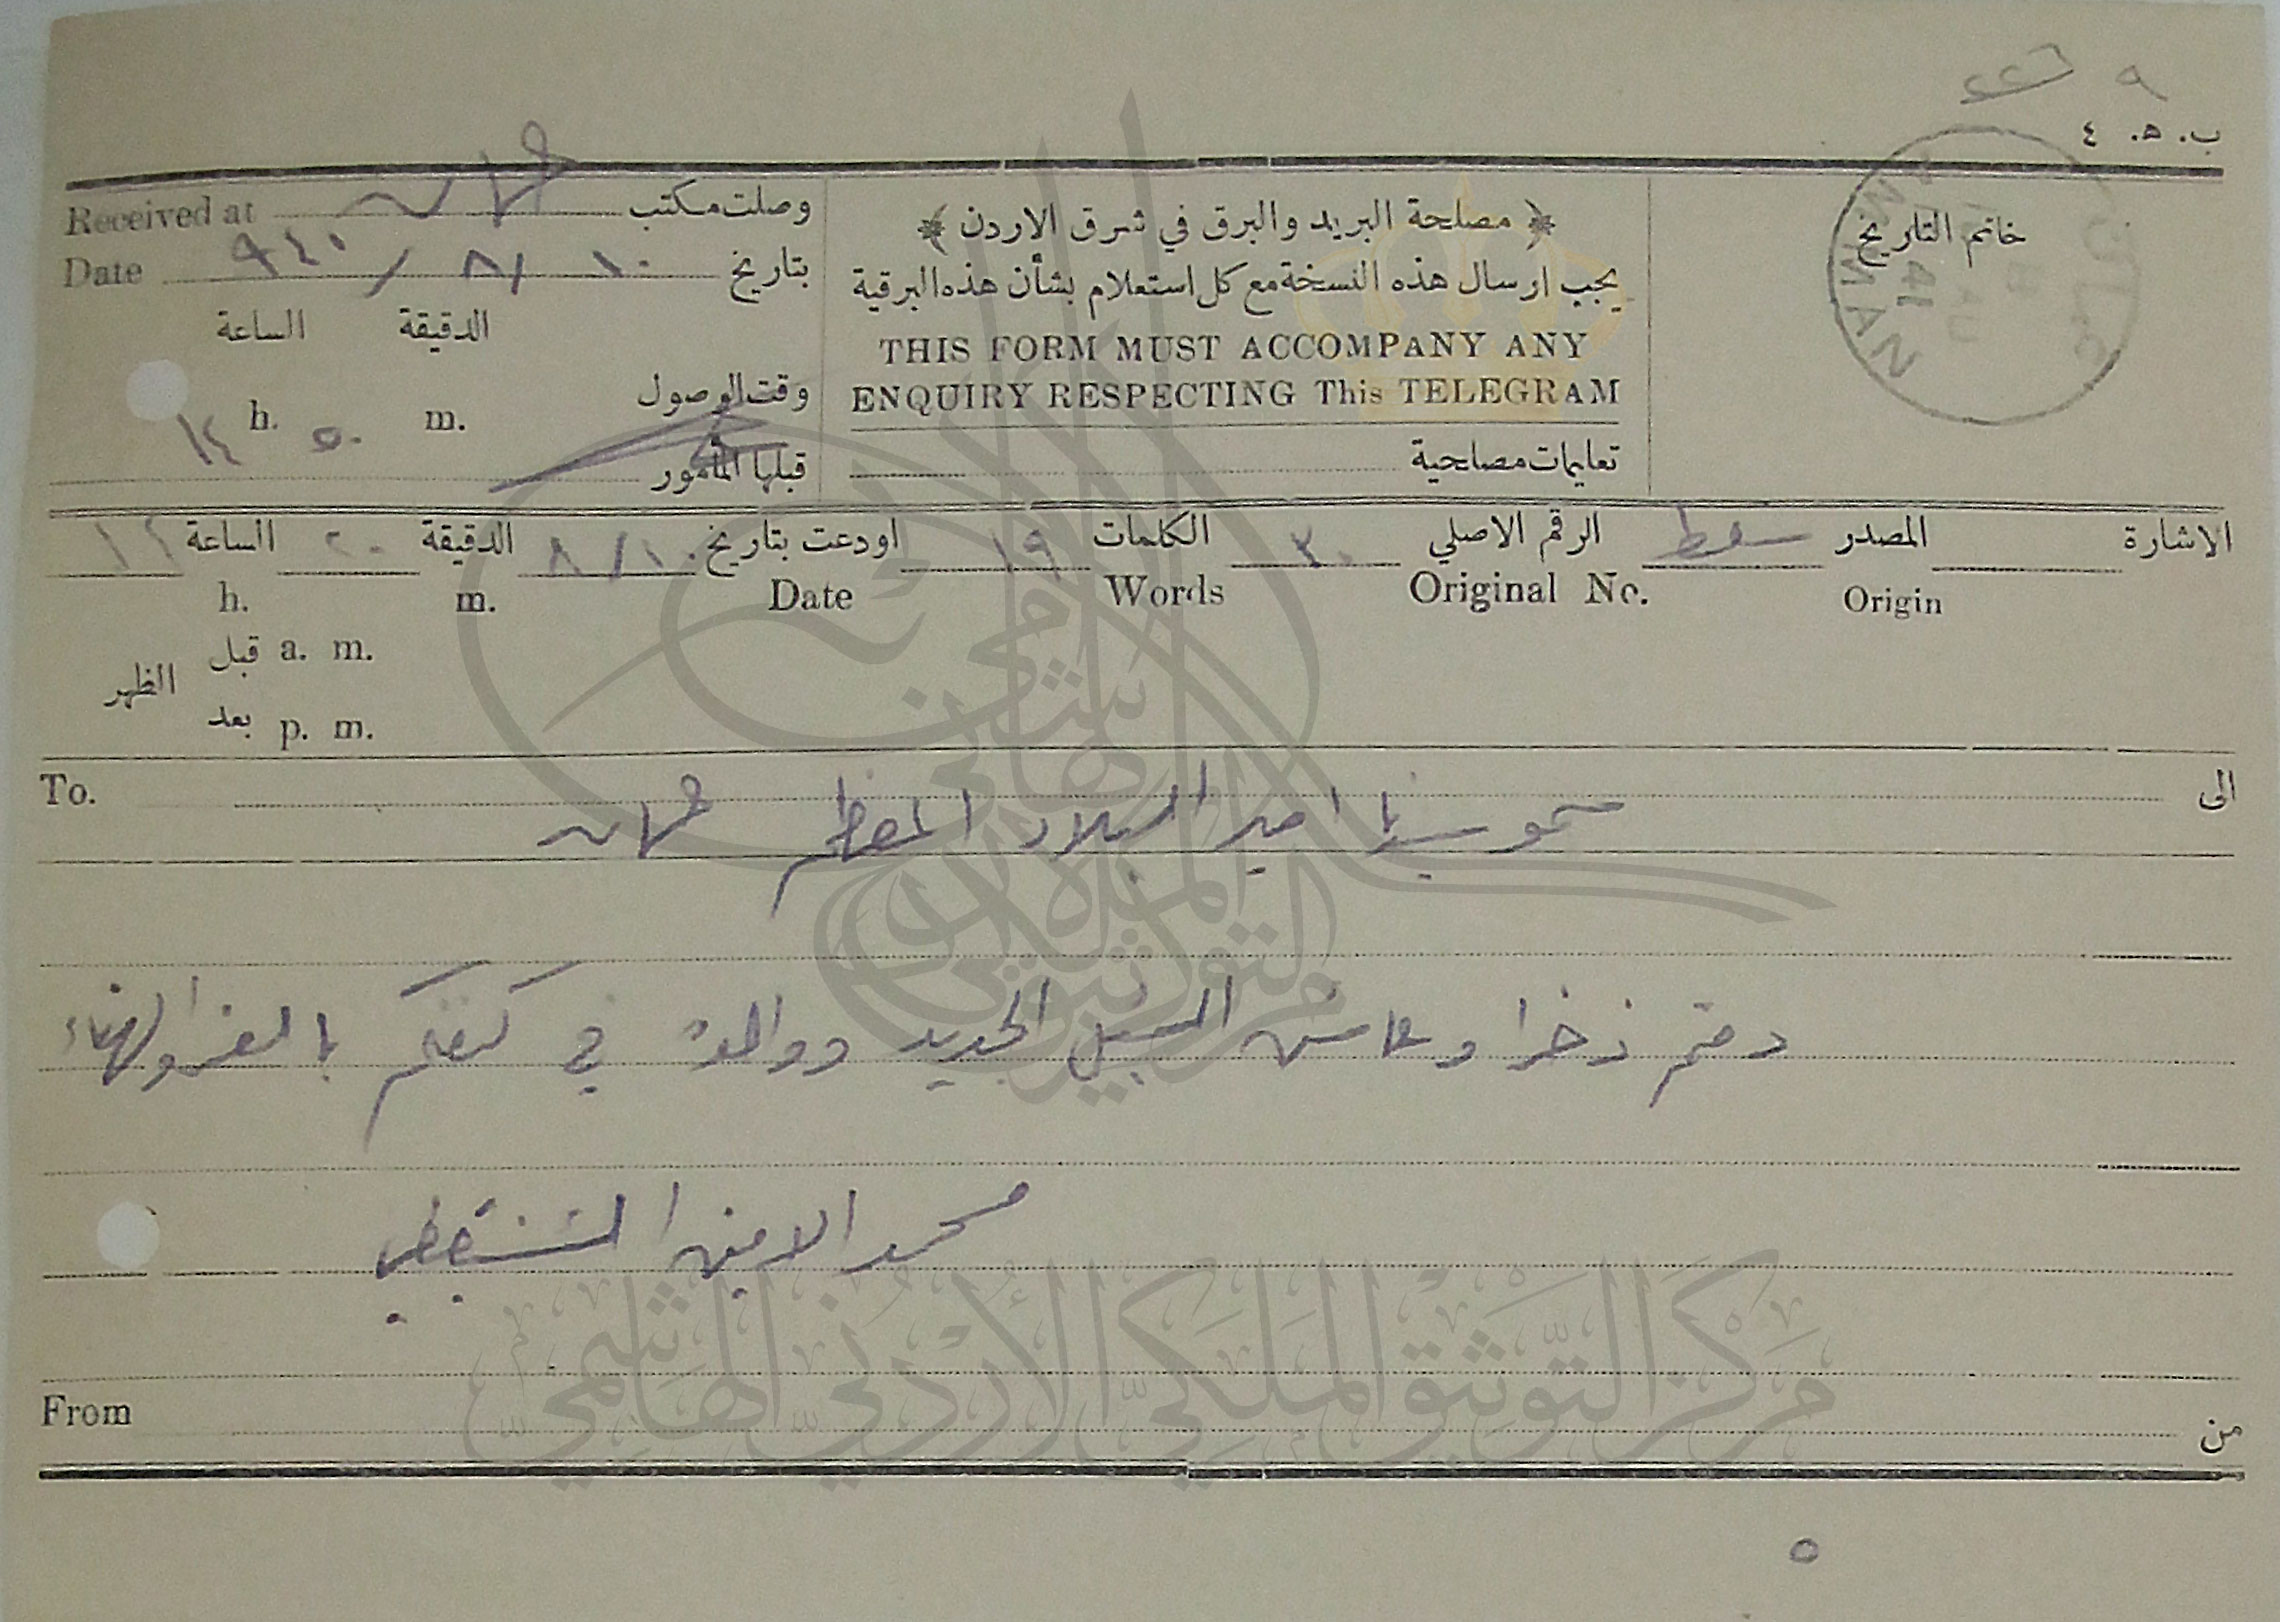 ٩ ٢٢٦
ب. ھ. ٤
Received at عمان وصلت مكتب
Date ٩٤٠ / ٨ / ١٠ بتاريخ
الدقيقة الساعة
وقت الوصول
١٤ h. ٥٠ m.
قبلها المأمور
﴿ مصلحة البريد والبرق في شرق الاردن ﴾
يجب ارسال هذه النسخة مع كل استعلام بشأن هذه البرقية
THIS FORM MUST ACCOMPANY ANY
ENQUIRY RESPECTING This TELEGRAM
تعليمات مصلحية
خاتم التاريخ
AMMAN
41
الاشارة المصدر الرقم الاصلي ٣٠ الكلمات ١٩ اودعت بتاريخ ١٠ / ٨ الدقيقة ٢٠ الساعة ١٢
Origin Original No. Words Date m. h.
قبل a. m.
الظهر
بعد p. m.
To. الى
سمو سيدنا امير البلاد المعظم عمان
دمتم ذخرا وعاش السبل الجديد ووالده في كنفكم بالعز والهناء
محمد الامين الشنقيطي
From من
٥
مركز التوثيق الملكي الأردني الهاشمي